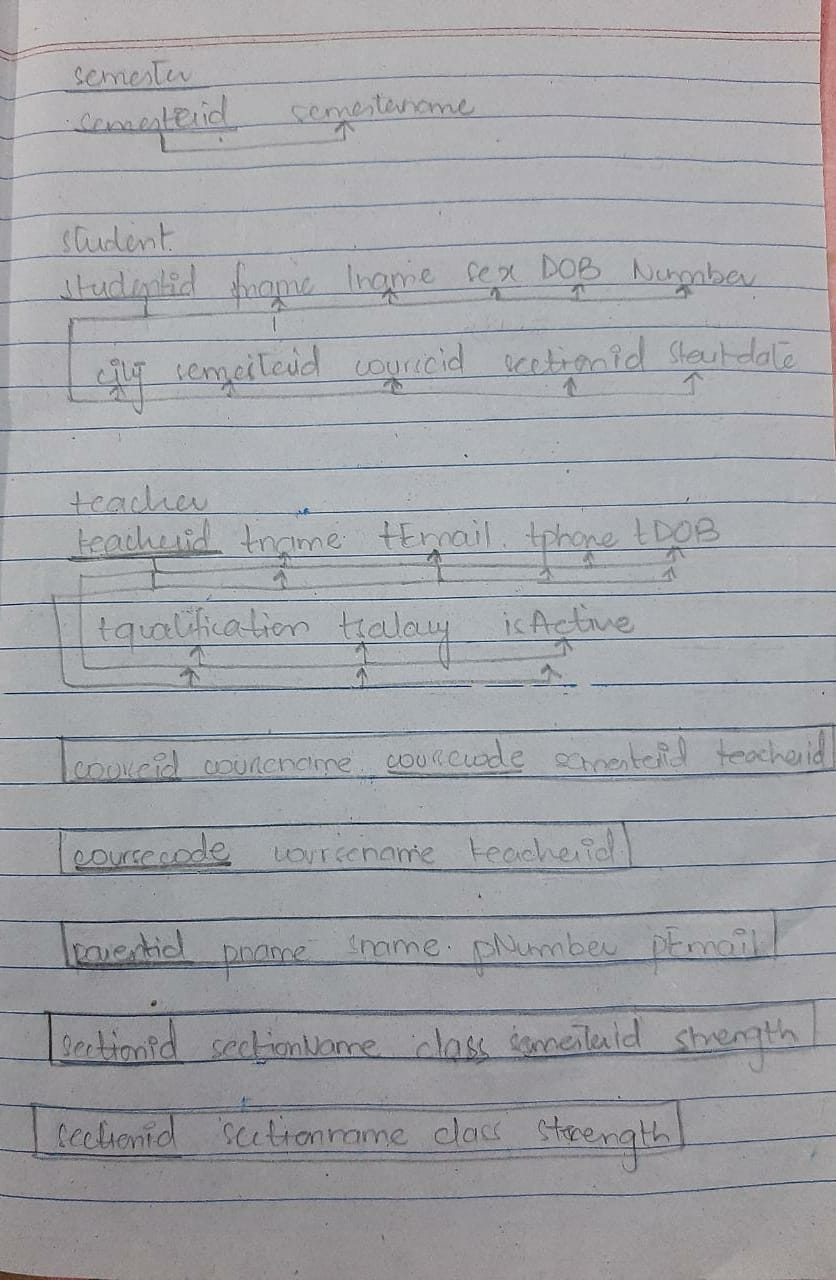 semester
semesterid semestername
student
studentid fname lname sex DOB Number
city semesterid courseid sectionid startdate
teacher
teacherid tname tEmail tphone tDOB
tqualification tsalary isActive
courseid coursename coursecode semesterid teacherid
coursecode coursename teacherid
parentid pname sname pNumber pEmail
sectionid sectionName class semesterid strength
sectionid sectionname class strength